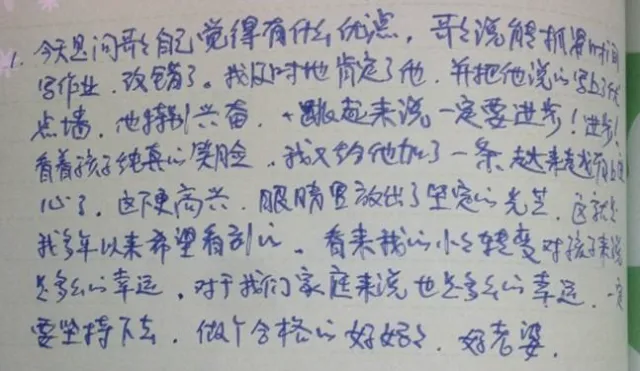 1. 今天是问哥哥自己觉得有什么优点，哥哥说能抓紧时间
写作业，改错了。我及时地肯定了他，并把他说的写上了优
点墙，他特别兴奋，一蹦起来说一定要进步！进步！
看着孩子纯真的笑脸，我又给他加了一条，越来越有上进
心了，这下更高兴，眼睛里放出了坚定的光芒，这就是
我多年以来希望看到的，看来我的小小转变对孩子来说
是多么的幸运，对于我们家庭来说也是多么的幸运，一定
要坚持下去，做个合格的好妈妈，好老婆。